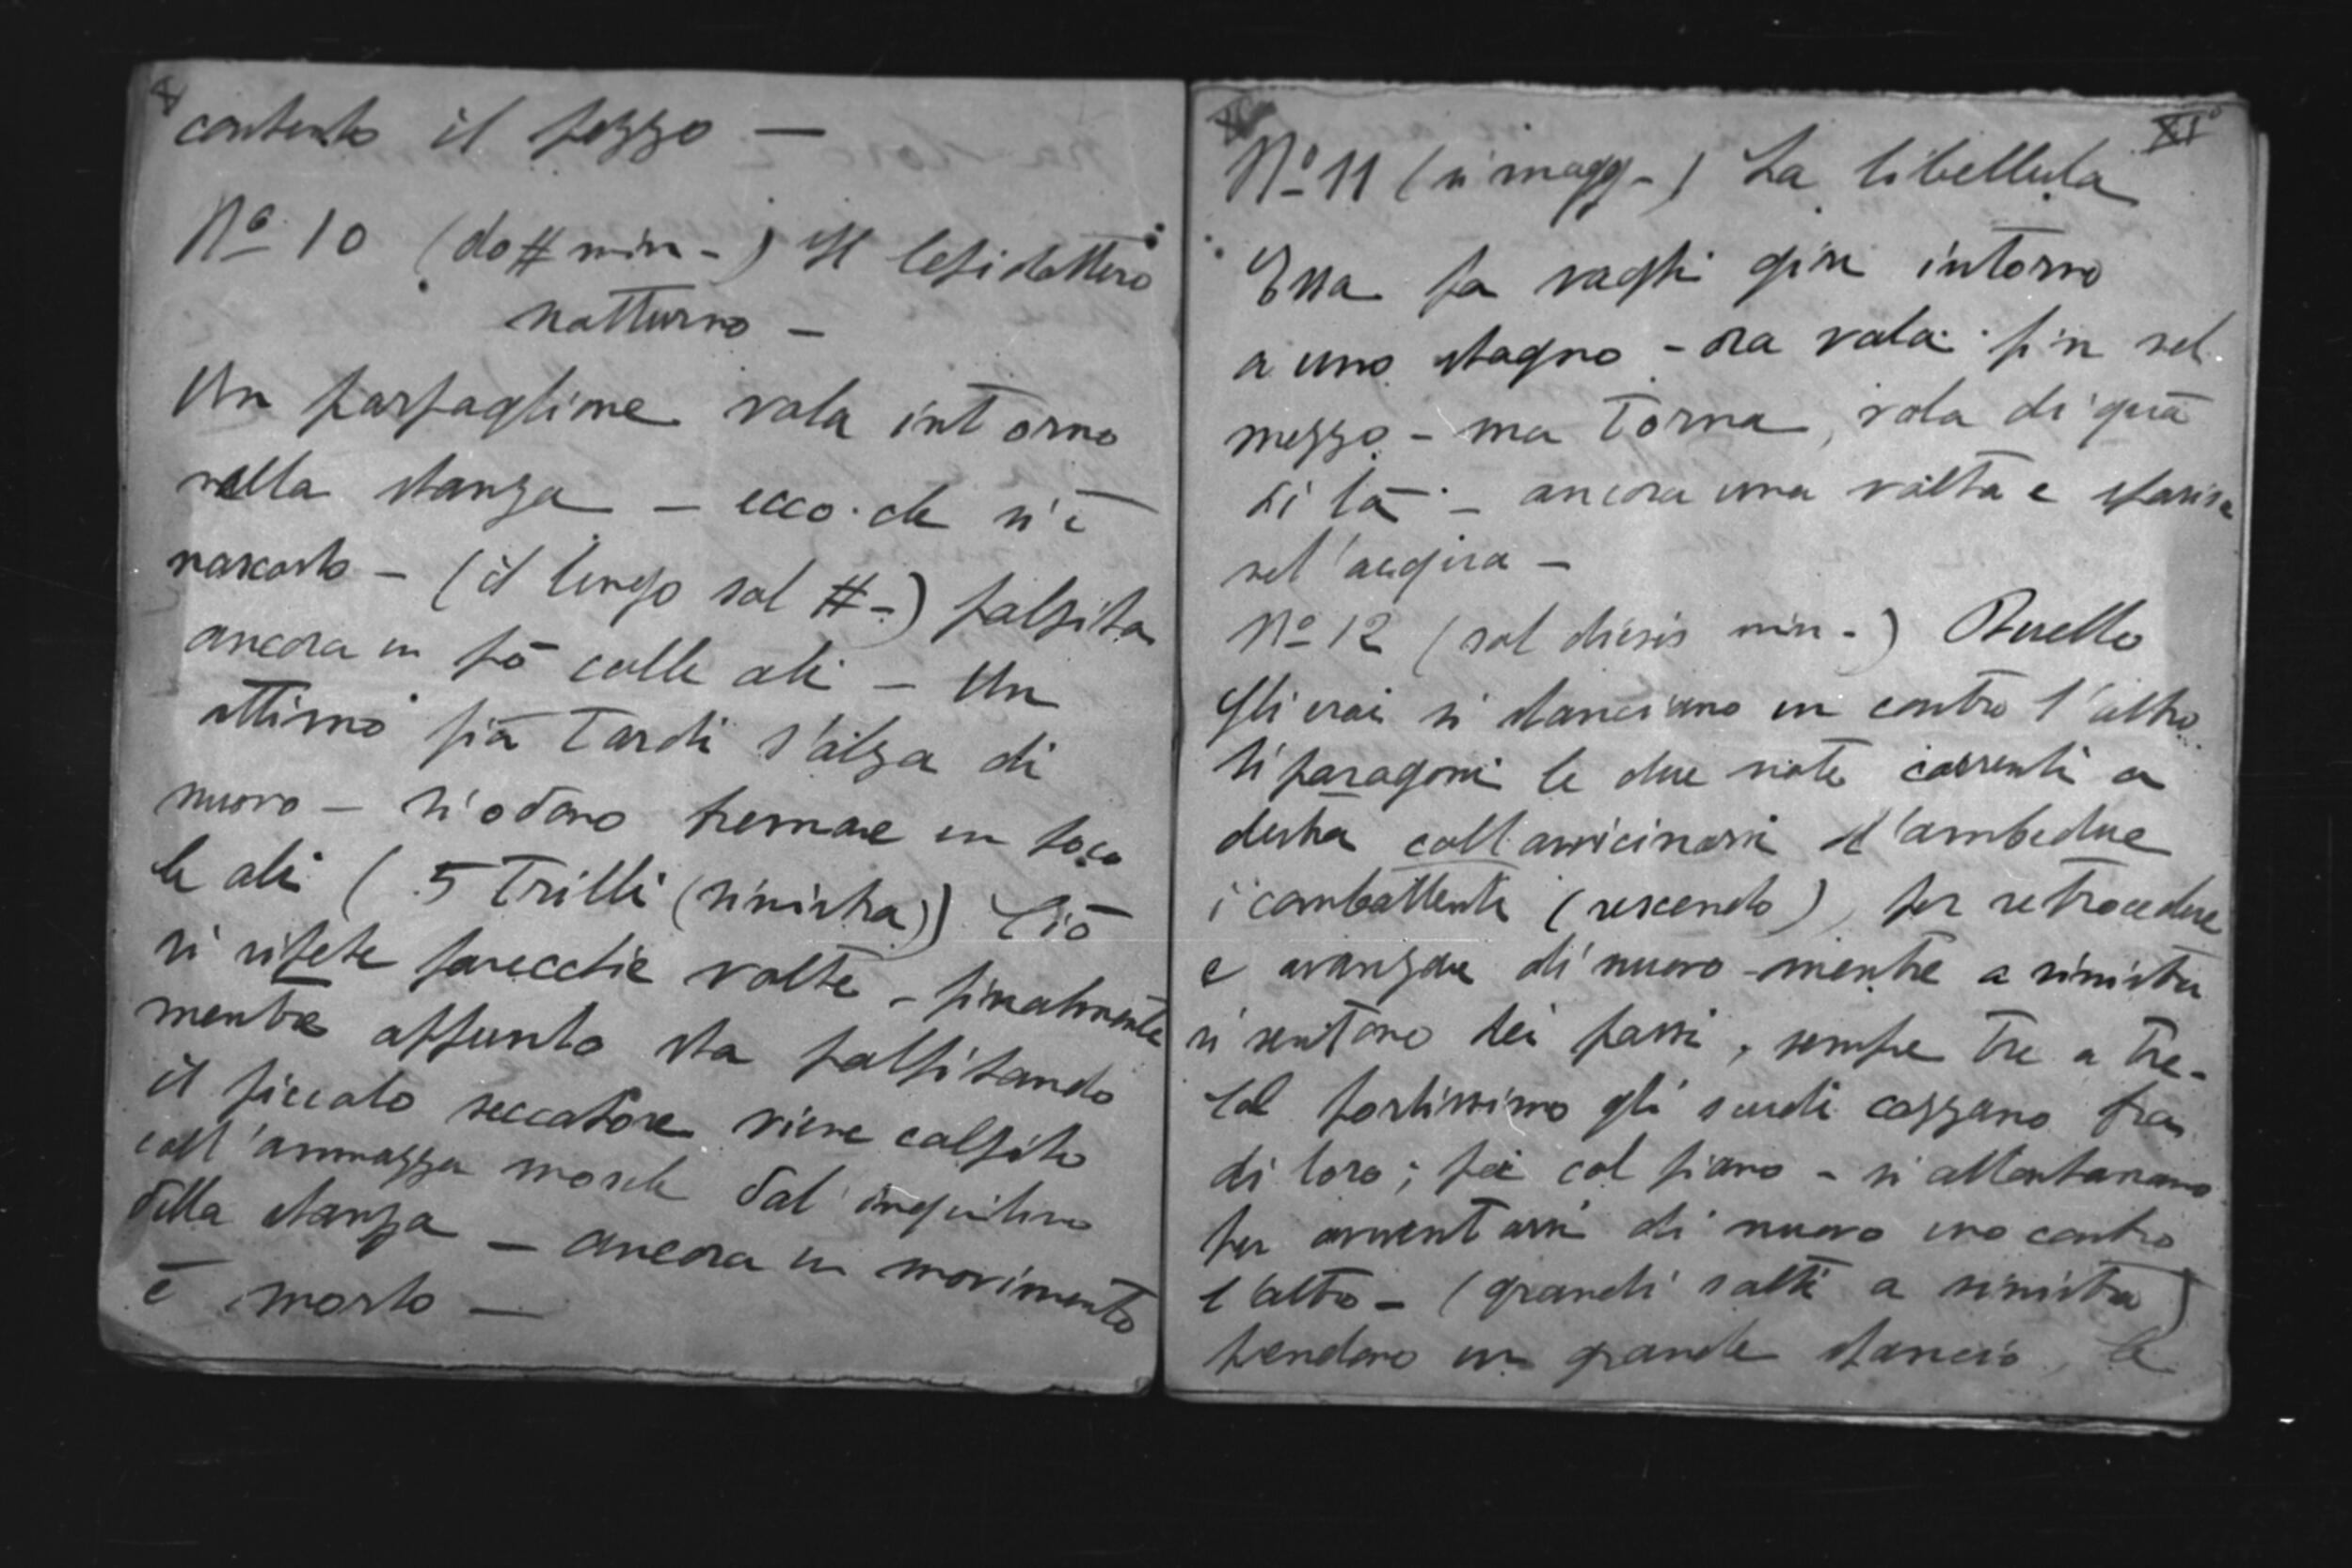 X
contento il pezzo —
Nº 10 (do # min -) Il lepidottero
notturno —
Un farfaglione vola intorno
nella stanza — ecco che si è
nascosto — (il lungo sol # -) palpita
ancora un pò colle ali — Un
attimo più tardi s'alza di
nuovo — si odono tremare un poco
le ali (5 Trilli (sinistra)) Ciò
si ripete parecchie volte - finalmente
mentre appunto sta palpitando
il piccolo seccatore viene colpito
coll'ammazza mosche dal inquilino
della stanza — ancora un movimento
è morto —
XIº
Nº 11 (si magg -) La libellula
Essa fa vaghi giri intorno
a uno stagno - ora vola fin nel
mezzo - ma torna, vola di quà
di là - ancora una volta e sparisce
nel'acqua —
Nº 12 (sol diesis min -) Duello
Gli eroi si slanciano un contro l'altro.
Si paragoni le due note correnti a
destra coll'avvicinarsi d'ambedue
i combattenti (crescendo), per retrocedere
e avanzare di nuovo - mentre a sinistra
si sentono dei passi, sempre tre a tre -
Col fortissimo gli scudi cozzano fra
di loro; poi col piano - si allontanano
per avventarsi di nuovo uno contro
l'altro - (grandi salti a sinistra)
prendono un grande slancio, le